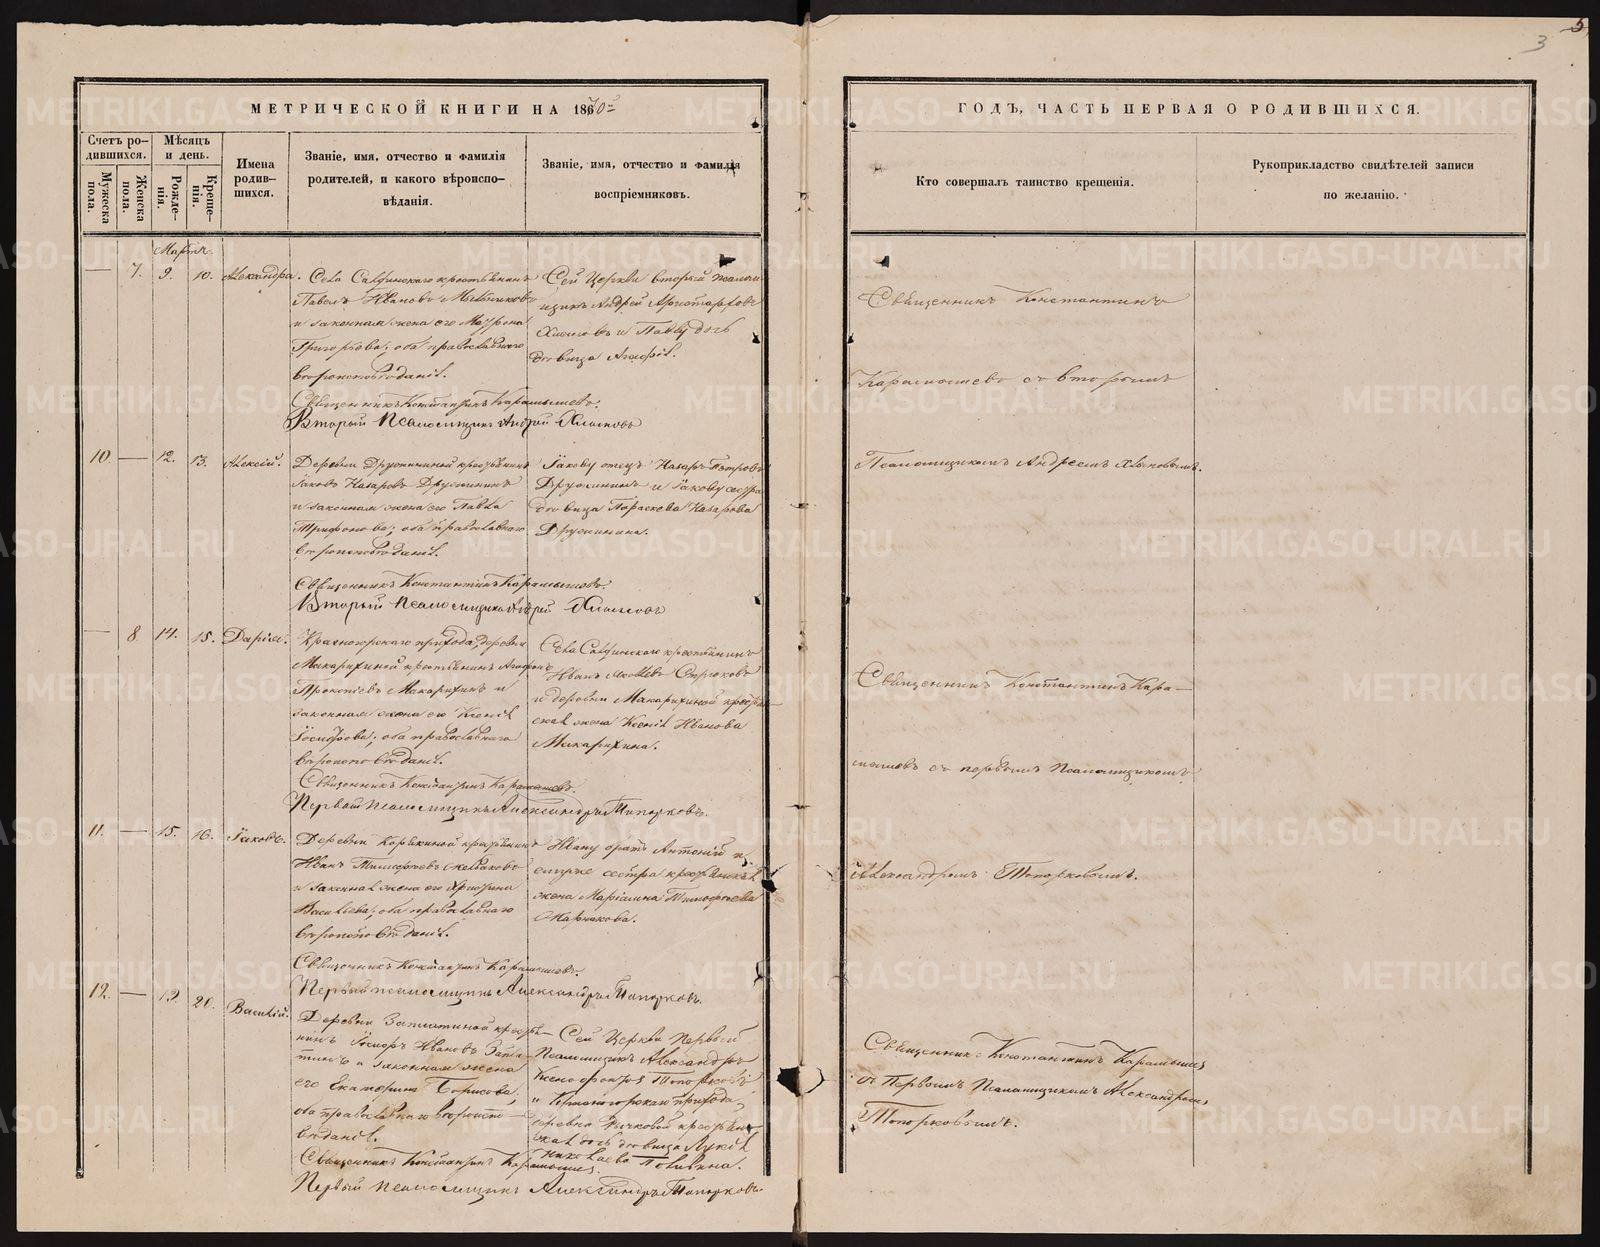 3
5
МЕТРИЧЕСКОЙ КНИГИ НА 1870
ГОДЪ, ЧАСТЬ ПЕРВАЯ О РОДИВШИХСЯ.
Счетъ родившихся.
Мужеска пола.
Женска пола.
Мѣсяцъ и день.
Рожденія.
Крещенія.
Имена родившихся.
Званіе, имя, отчество и фамилія
родителей, и какого вѣроиспо-
вѣданія.
Званіе, имя, отчество и фамилія
воспріемниковъ.
Кто совершалъ таинство крещенія.
Рукоприкладство свидѣтелей записи
по желанію.
Марта.
— 7. 9. 10. Александра.
Села Салдинскаго крестьянинъ
Павелъ Ивановъ
и законная жена его Мавра
Григорьева; оба православнаго
вѣроисповѣданія.
Сей Церкви вторый псалом-
щикъ Андрей Аристарховъ
Хлыновъ и Павлу дочь
дѣвица
Священникъ Константинъ Карамышевъ.
Вторый Псаломщикъ Андрей Хлыновъ
Священникъ Константинъ
Карамышевъ съ вторымъ
Псаломщикомъ Андреемъ Хлыновымъ.
10. — 12. 13. Алексій.
Деревни Дружининой крестьянинъ
Іаковъ Назаровъ Дружининъ
и законная жена его Павла
Трифонова; оба православнаго
вѣроисповѣданія.
Іакову отецъ Назаръ Петровъ
Дружининъ и Іакову сестра
дѣвица Параскева Назарова
Дружинина.
Священникъ Константинъ Карамышевъ.
Вторый Псаломщикъ Андрей Хлыновъ
— 8 14. 15. Дарія.
Красногорскаго прихода, деревни
Макарихиной крестьянинъ Агафонъ
Прокопіевъ Макарихинъ и
законная жена его Ксенія
Іосифова; оба православнаго
вѣроисповѣданія.
Села Салдинскаго крестьянинъ
Иванъ Яковлевъ
и деревни Макарихиной крестьян-
ская жена Ксенія Иванова
Макарихина.
Священникъ Константинъ Карамышевъ.
Первый Псаломщикъ Александръ Топорковъ.
Священникъ Константинъ Кара-
мышевъ съ первымъ Псаломщикомъ
Александромъ Топорковымъ.
11. — 15. 16. Іаковъ.
Деревни крестьянинъ
Иванъ Тимофеевъ
и законная жена его Христина
Васильева; оба православнаго
вѣроисповѣданія.
Ивану братъ Антоній и
ему же сестра крестьянская
жена Маріамна Тимофеева
Священникъ Константинъ Карамышевъ.
Первый псаломщикъ Александръ Топорковъ.
12. — 19. 20. Василій.
Деревни Заплатиной крестья-
нинъ Іосифъ Ивановъ Запла-
тинъ и законная жена
его Екатерина Борисова,
оба православнаго вѣроиспо-
вѣданія.
Сей Церкви Первый
Псаломщикъ Александръ
Ксенофонтовъ Топорковъ
и Красногорскаго прихода,
деревни крестьян-
ская дочь дѣвица Лукія
Николаева
Священникъ Константинъ Карамышевъ.
Первый Псаломщикъ Александръ Топорковъ.
Священникъ Константинъ Карамышевъ
съ Первымъ Псаломщикомъ Александромъ
Топорковымъ.
METRIKI.GASO-URAL.RU